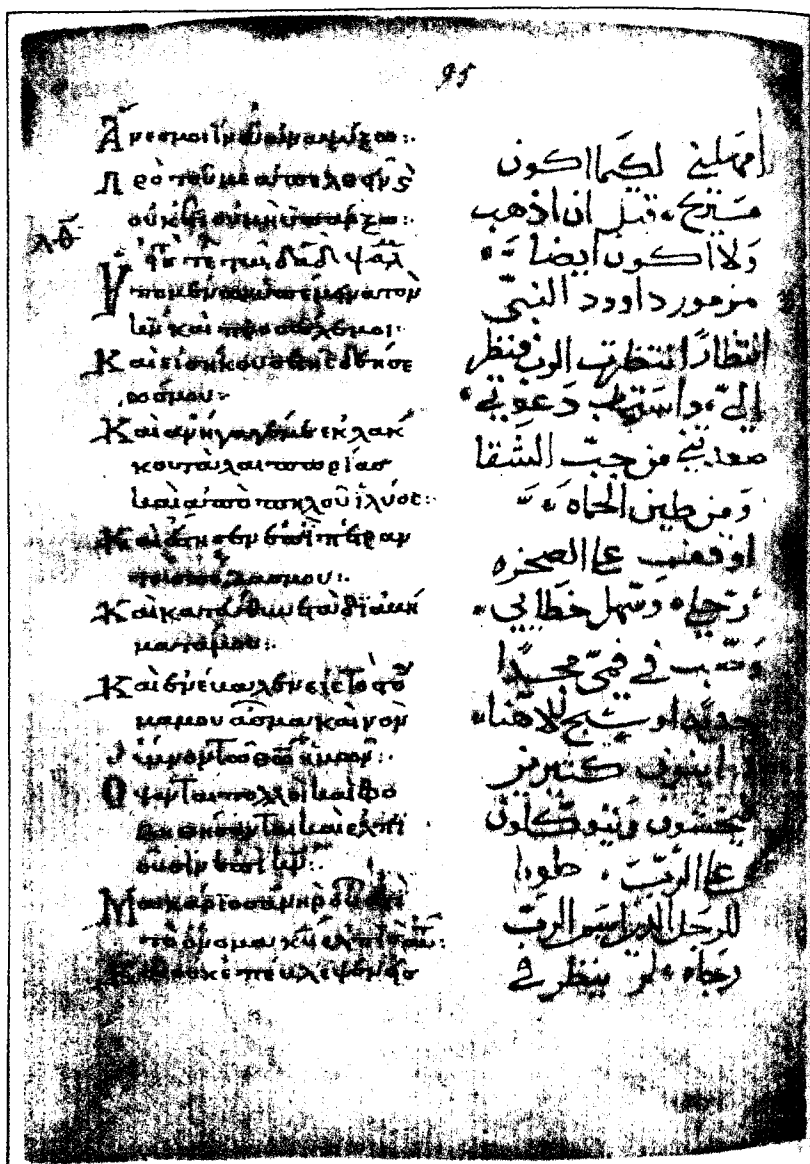 95
Ἄνες μοι ἵνα ἀναψύξω:·
Πρὸ τοῦ με ἀπελθεῖν ϗ
οὐκέτι οὐ μὴ ὑπάρξω:·
λθ
τῷ δαδ ψαλ
Ὑπομένων ὑπέμεινα τὸν
κν καὶ προσέσχε μοι:·
Καὶ εἰσήκουσε τῆς δεήσε
ως μου:·
Καὶ ἀνήγαγέ με ἐκ λάκ
κου ταλαιπωρίας
καὶ ἀπὸ πηλοῦ ἰλύος:·
Καὶ ἔστησεν ἐπὶ πέτραν
τοὺς πόδας μου:·
Καὶ κατεύθυνε τὰ διαβή
ματά μου:·
Καὶ ἐνέβαλεν εἰς τὸ στό
μα μου ᾆσμα καινὸν
ὕμνον τῷ θω ἡμῶν:·
Ὄψονται πολλοὶ καὶ φο
βηθήσονται καὶ ἐλπι
οῦσιν ἐπὶ κν:·
Μακάριος ἀνὴρ οὗ ἐστὶ
τὸ ὄνομα κυ ἐλπὶς αὐτοῦ:
Καὶ οὐκ ἐπέβλεψεν εἰς
امهلني لكيما اكون
مستريح قبل ان اذهب
ولا اكون ايضا
مزمور داوود النبي
انتظارا انتظرت الرب فنظر
الي واستجاب دعوتي
صعدني من جب الشقا
ومن طين الحماه
اوقفت على الصخره
رجلي وسهل خطاي
في فمي مجدا
جديدا وتسبيح لالاهنا
كثيرين
يخشون ويتوكلون
على الرب طوبا
للرجل الذي اسم الرب
رجاه لم ينظر في